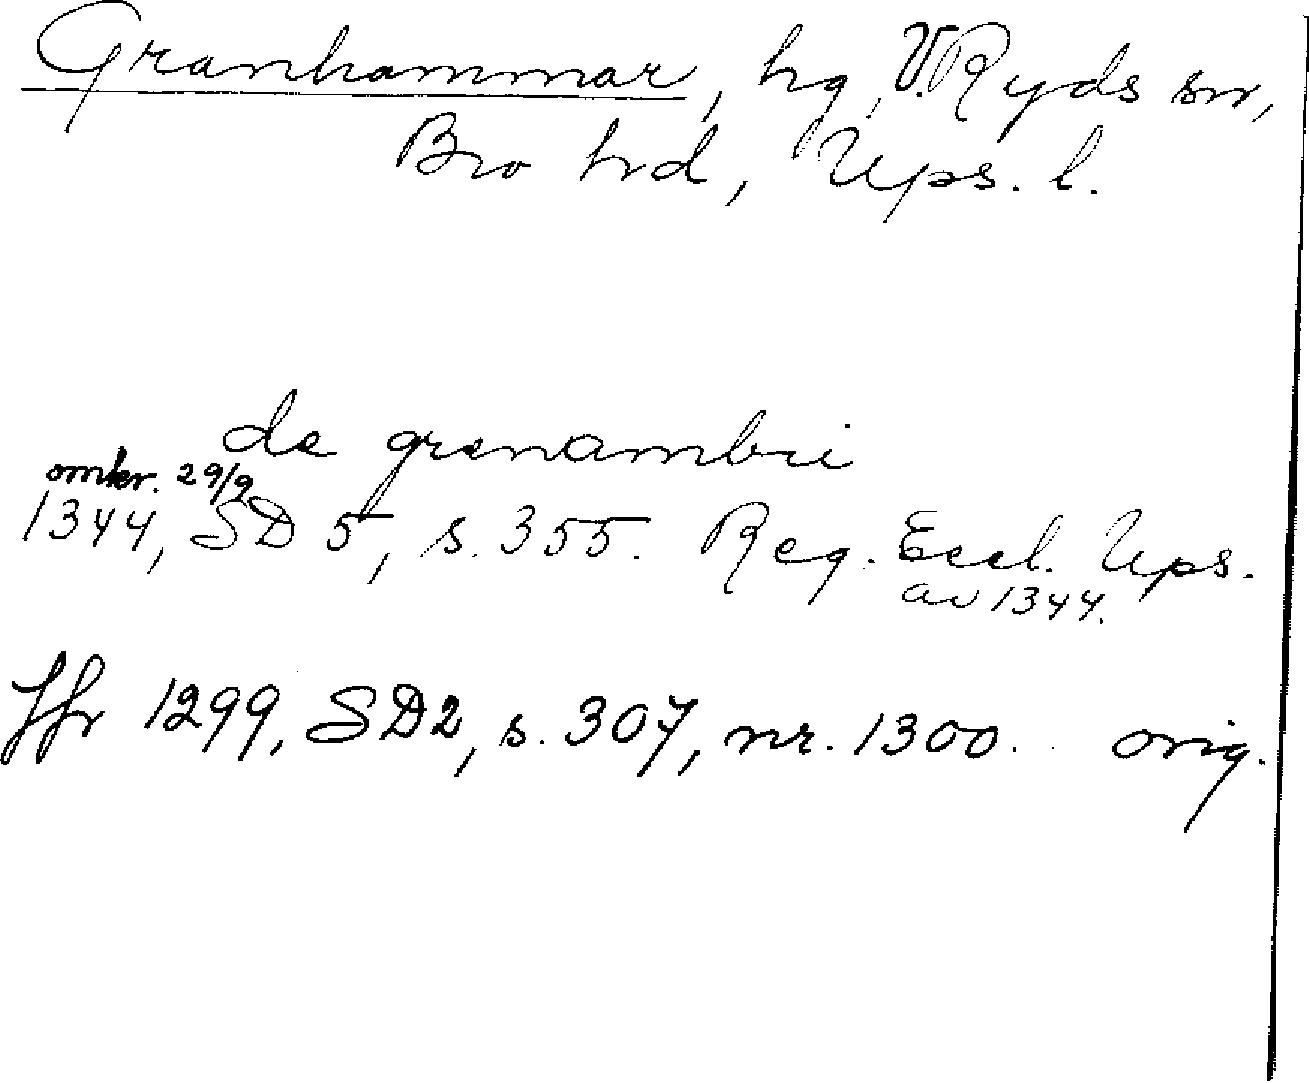 Granhammar, hg, V. Ryds sn,
Bro hrd, Ups. l.
de grenambri
omkr. 29/9
1344, SD 5, s. 355. Reg. Eccl. Ups.
av 1344.
Jfr 1299, SD2, s. 307, nr. 1300. orig.